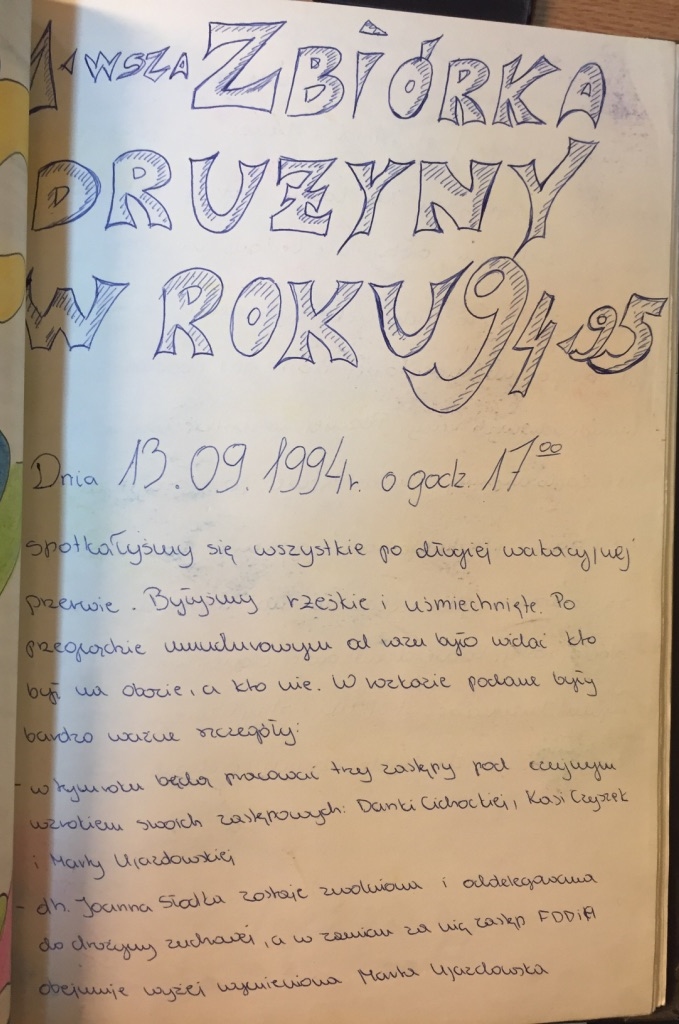 1-wsza ZBIÓRKA
DRUŻYNY
W ROKU 94-95
Dnia 13.09.1994r. o godz. 17⁰⁰
spotkałyśmy się wszystkie po długiej wakacyjnej
przerwie. Byłyśmy rześkie i uśmiechnięte. Po
przeglądzie umundurowym od razu było widać kto
był na obozie, a kto nie. W rozkazie podane były
bardzo ważne szczegóły:
- w tym roku będą pracować trzy zastępy pod czujnym
wzrokiem swoich zastępowych: Danki Cichockiej, Kasi Czyżek
i Marty Ujazdowskiej
- dh. Joanna Siodła zostaje zwolniona i oddelegowana
do drużyny zuchowej, a w zamian za nią zastęp
obejmuje wyżej wymieniona Marta Ujazdowska